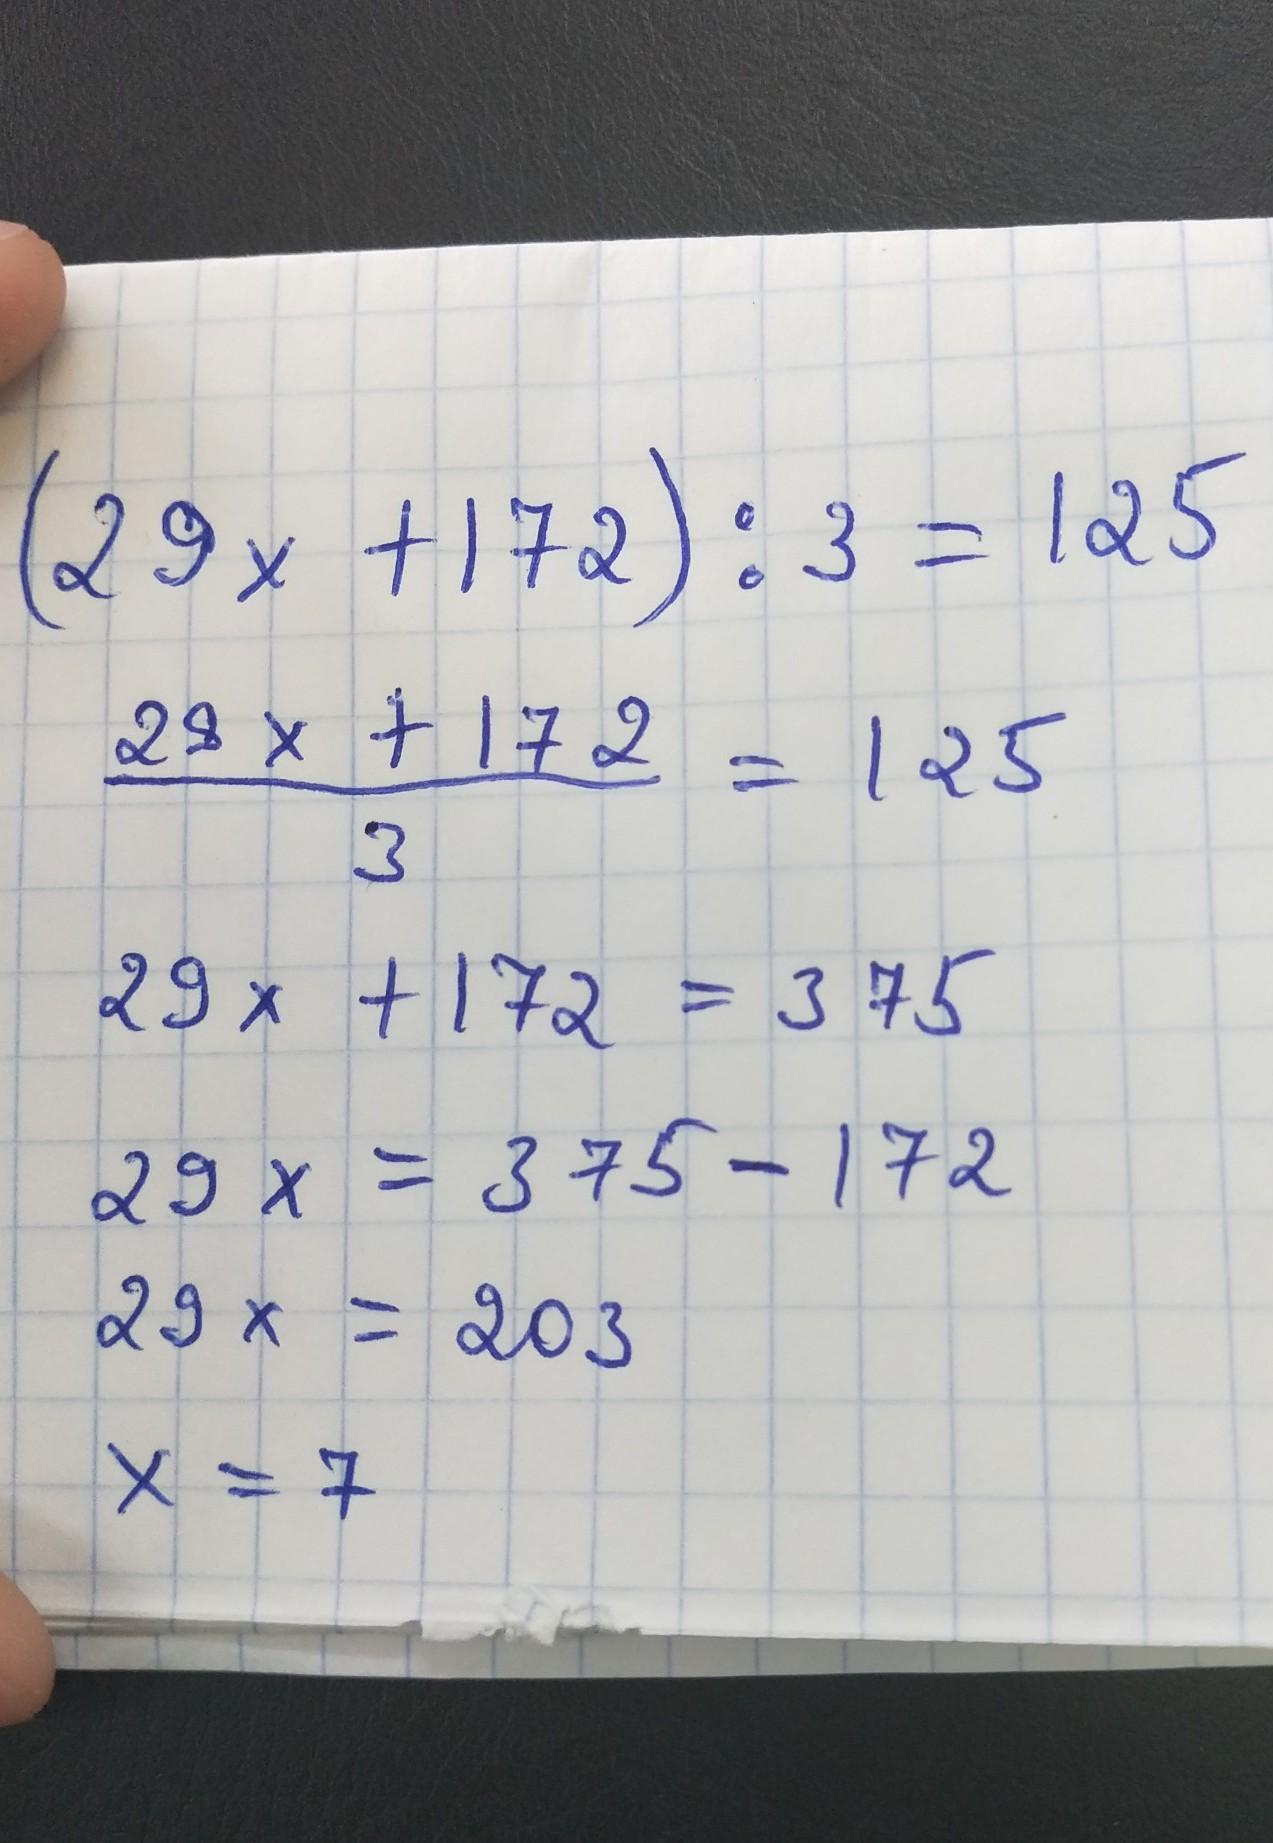 (29x + 172) : 3 = 125
29x + 172 = 125
3
29x + 172 = 375
29x = 375 - 172
29x = 203
x = 7